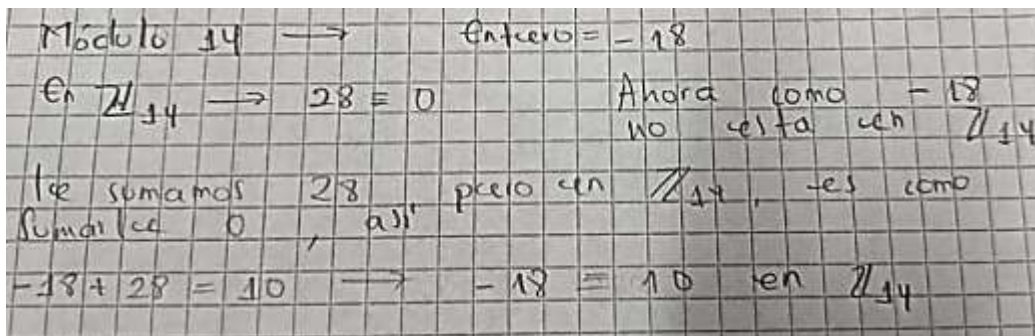 Módulo 14 → Entero = -18
En ℤ14 → 28 ≡ 0 Ahora como -18
no esta en ℤ14
le sumamos 28 pero en ℤ14, es como
sumarle 0, así
-18 + 28 = 10 → -18 = 10 en ℤ14